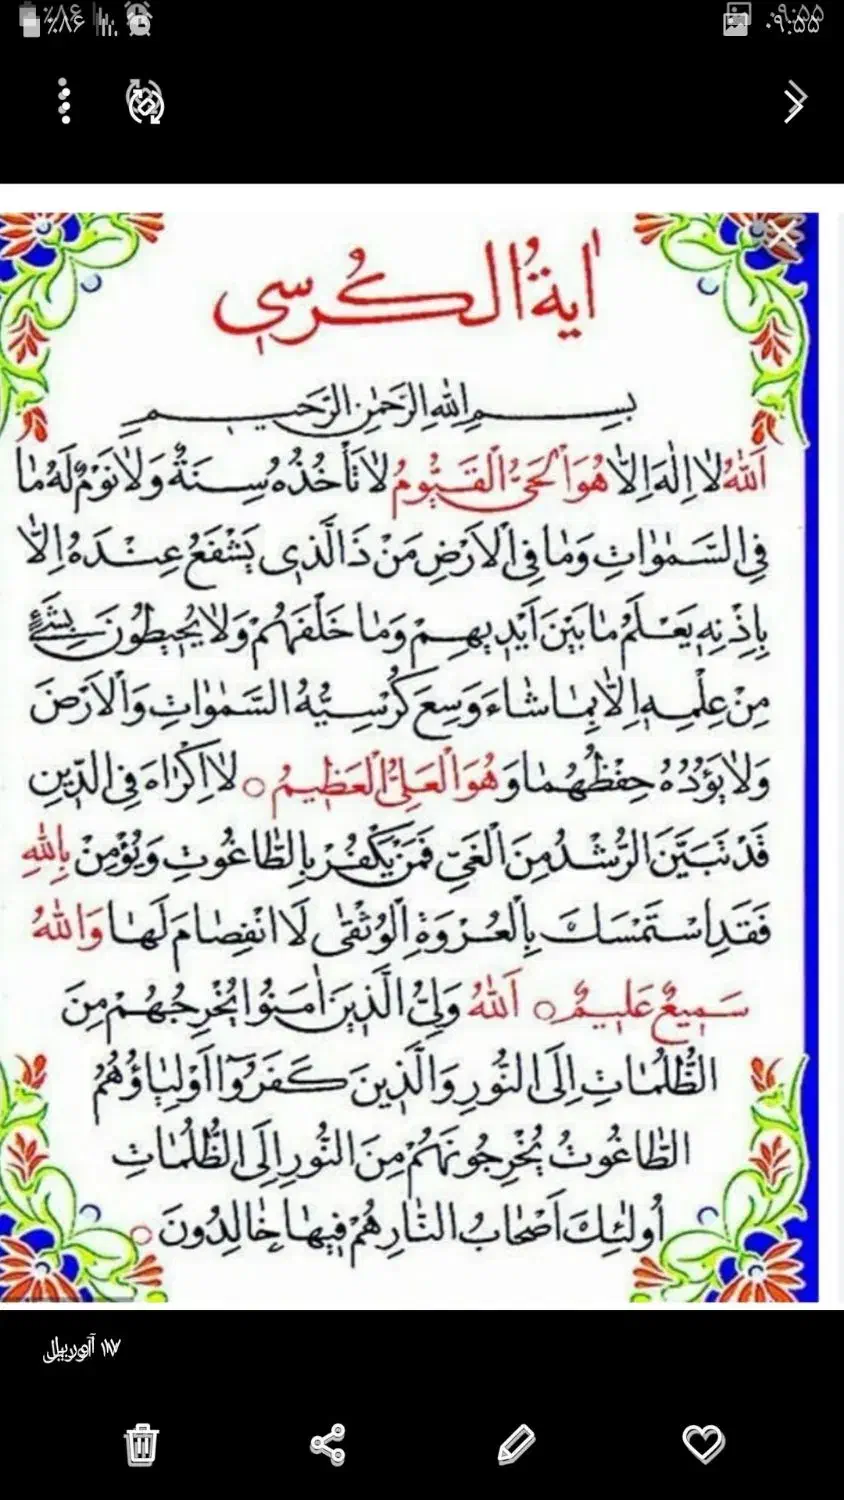 ٪۸۶ ۰۹:۵۵
اٰیةُ الکُرسي
بِسْمِ اللهِ الرَّحْمٰنِ الرَّحِيمِ
اَللهُ لٰا اِلٰهَ اِلاّٰ هُوَ الْحَيُّ الْقَيُّومُ لٰا تَأْخُذُهُ سِنَةٌ وَلٰا نَوْمٌ لَهُ مٰا
فِي السَّمٰوٰاتِ وَمٰا فِي الْاَرْضِ مَنْ ذَا الَّذي يَشْفَعُ عِنْدَهُ اِلاّٰ
بِاِذْنِهِ يَعْلَمُ مٰا بَيْنَ اَيْديهِمْ وَمٰا خَلْفَهُمْ وَلٰا يُحيطُونَ بِشَيْءٍ
مِنْ عِلْمِهِ اِلاّٰ بِمٰا شٰاءَ وَسِعَ كُرْسِيُّهُ السَّمٰوٰاتِ وَالْاَرْضَ
وَلٰا يَؤُدُهُ حِفْظُهُمٰا وَ هُوَ الْعَلِيُّ الْعَظيمُ ○ لٰا اِكْرٰاهَ فِي الدّينِ
قَدْ تَبَيَّنَ الرُّشْدُ مِنَ الْغَيِّ فَمَنْ يَكْفُرْ بِالطّٰاغُوتِ وَيُؤْمِنْ بِاللهِ
فَقَدِ اسْتَمْسَكَ بِالْعُرْوَةِ الْوُثْقٰى لَا انْفِصٰامَ لَهٰا وَاللهُ
سَميعٌ عَليمٌ ○ اَللهُ وَلِيُّ الَّذينَ اٰمَنُوا يُخْرِجُهُمْ مِنَ
الظُّلُمٰاتِ اِلَى النُّورِ وَالَّذينَ كَفَرُوۤا اَوْلِيٰاؤُهُمُ
الطّٰاغُوتُ يُخْرِجُونَهُمْ مِنَ النُّورِ اِلَى الظُّلُمٰاتِ
اُولٰئِكَ اَصْحٰابُ النّٰارِ هُمْ فيهٰا خٰالِدُونَ ○
۱۷ آوریل